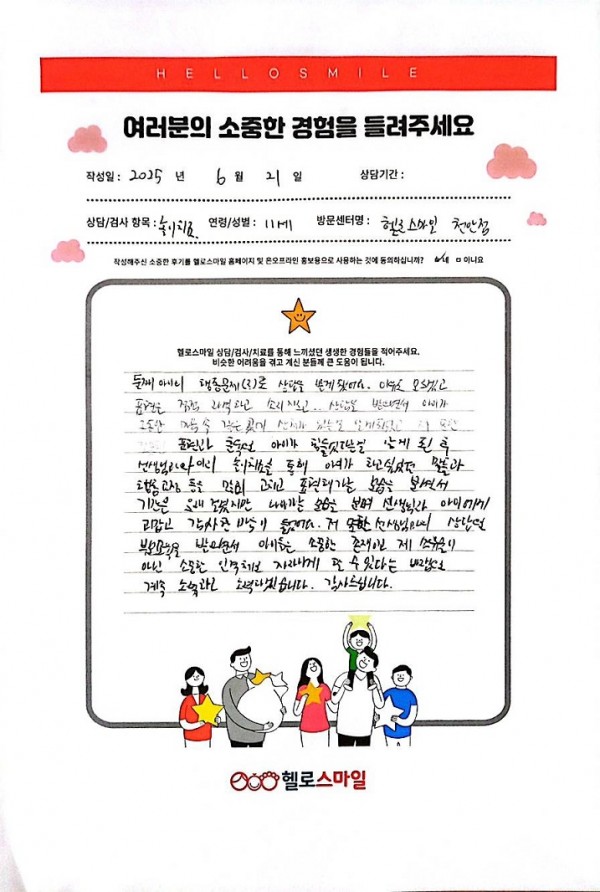 HELLOSMILE
여러분의 소중한 경험을 들려주세요
작성일 : 2025 년 6 월 21 일 상담기간 :
상담/검사 항목 : 놀이치료. 연령/성별 : 11세 방문센터명 : 헬로스마일 천안점
작성해주신 소중한 후기를 헬로스마일 홈페이지 및 온오프라인 홍보용으로 사용하는 것에 동의하십니까? 네 □ 아니요
헬로스마일 상담/검사/치료를 통해 느끼셨던 생생한 경험들을 적어주세요.
비슷한 어려움을 겪고 계신 분들께 큰 도움이 됩니다.
둘째 아이의 행동문제 로 상담을 받게 됐어요. 이유도 모르겠고
표현은 점점 과격하고 소리지르고.. 상담을 받으면서 아이가
표현과 아이가 힘들었다는걸 알게 된 후
선생님과 놀이치료를 통해 하고싶었던 말들과
행동교정 등을 많이 고치고 표현해가는 모습을 보면서
기간은 오래 걸렸지만 나아가는 모습을 보며 선생님과 아이에게
고맙고 감사한 마음이 들었어요. 저 또한 선생님과의 상담및
부모교육을 받으면서 아이들은 소중한 존재이고 제 소유물이
아닌 소중한 인격체로 자라나게 할 수 있다는
계속 노력하겠습니다. 감사드립니다.
헬로스마일